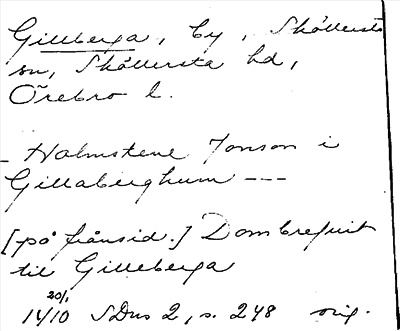 Gillberga, by, Sköllersta
sn, Sköllersta hd,
Örebro l.
- Halmstene Jonson i
Gillaberghum ---
[på frånsid.] Dombrefuit
til Gilleberga
20/1
1410 SDns 2, s. 248 orig.